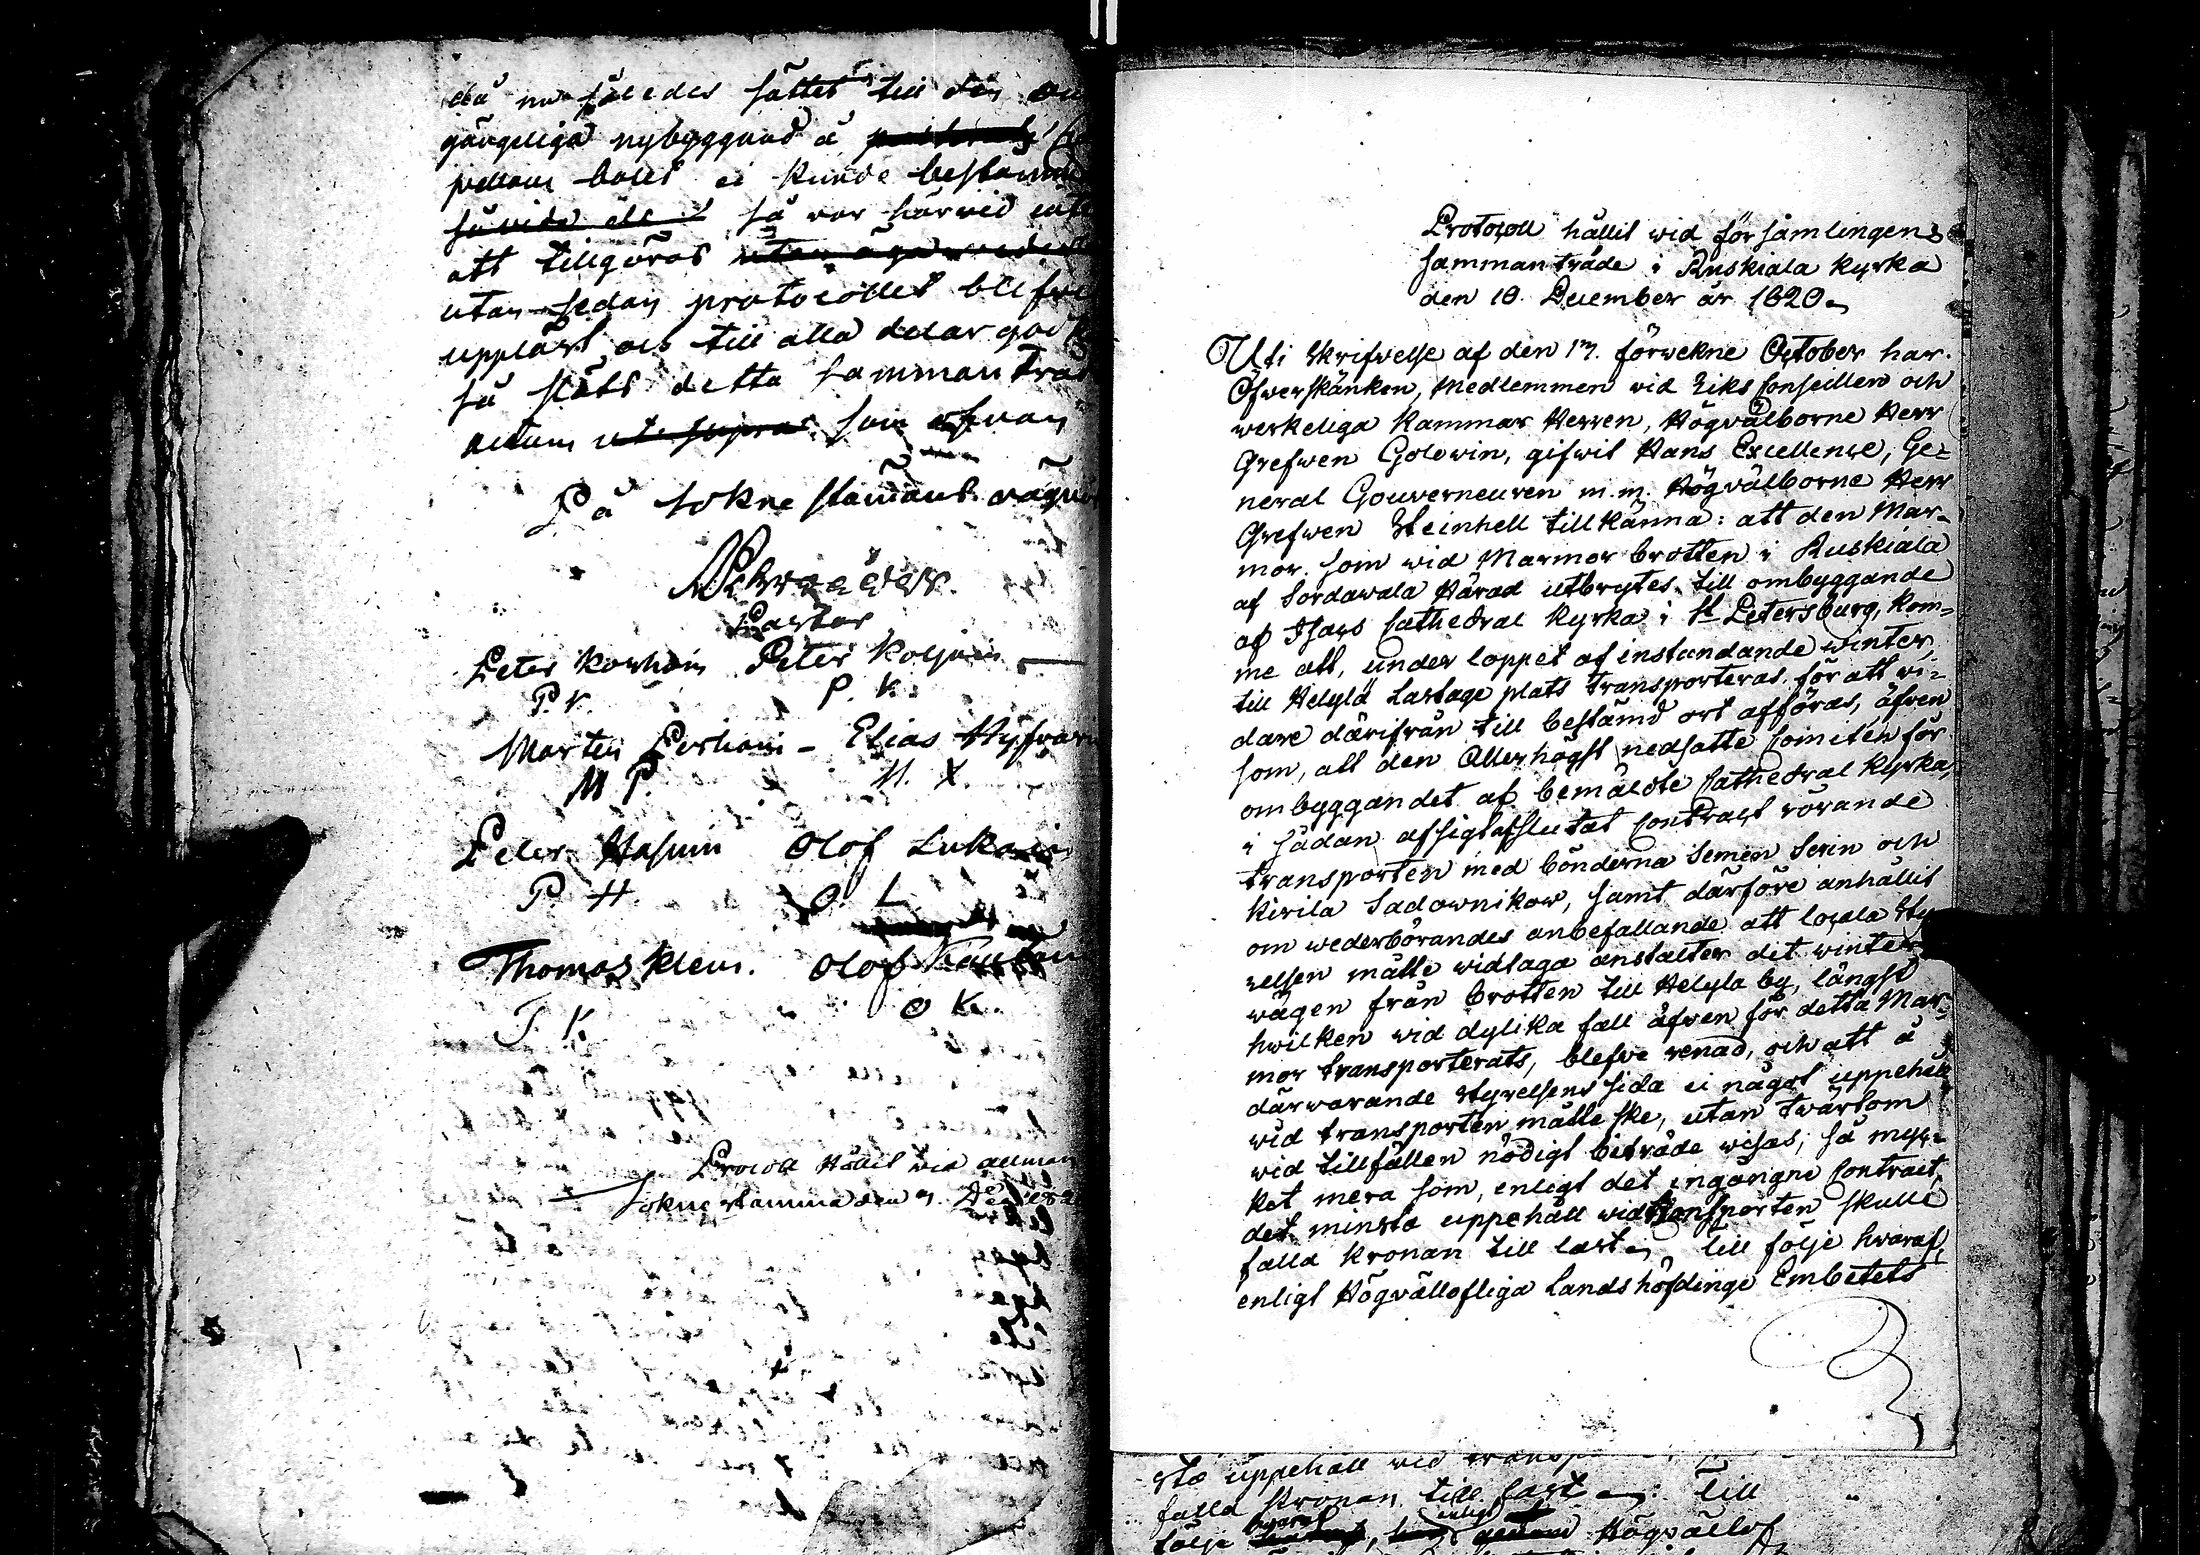 då nu således sättet till den
gängeliga nybyggnad å
pellans bolet ei kunde bestämm
så vida så var härvid
att tillgöras
utan sedan protocollet blifvit
uppläst och till alla delar
så slöts detta Samman träd
actum ut supra som ofvan
På Sokne stämans vägnar
Pastor
Peter Korhoin Peter Koljoin
P. K. P. K.
Morten Perhoin - Elias
M P. H. X.
Peter Hasuin Olof Lukain
P H O L
Thomas Klem. Olof
T. K. O K.
Procoll Hållit wid allmen
Sokne stamma den
Protocoll hållit wid församlingens
sammanträde i Ruskiala Kyrka
den 10 December år 1820
Uti Skrifwelse af den 17. förwekne October har
Öfwerskänken, Medlemmen vid Riks Conseillen och
werkeliga Kammar Herren, Högvälborne Herr
Grefwen Golowin, gifwit Hans Excellence, Ge=
neral Gouverneuren m.m. Högvälborne Herr
Grefwen Steinhell tillkänna: att den Mar-
mor som wid Marmor brotten i Ruskiala
af Sordawala Härad utbrytes till ombyggande
af Isacs Cathedral Kyrka i St Petersburg, kom=
me att, under loppet af instundande winter,
till Helylä Lastage plats transporteras för att vi=
dare därifrån till bestämd ort afföras, äfven
som, att den Allerhögst nedsatte Comitén för
ombyggandet af bemälte Cathedral Kyrka,
i sådan afsigt afslutat Contract rörande
transporten med bönderna Semen Serin och
Kirila Sadownikow, samt därföre anhållit
om wederbörandes anbefallande att locala Sty
relsen måtte widtaga anstalter det winter
wägen från brotten till Helyla by, längst
hwilken wid dylika fall äfwen för detta Mar=
mor transporterats, blefwe renad, och att å
därwarande Styrelsens sida ei något uppehåll
wid transporten måtte ske, utan twärtom
wid tillfällen nödigt biträde wisas, så myc=
ket mera som, enligt det ingångne Contract,
det minsta uppehåll wid transporten skulle
falla Kronan till last. Till följe hwaraf,
enligt Högvällofliga Landshöfdinge Embetets
sta uppehåll wid transp
falla Kronan till last Till
följe hwaraf, enligt Högvällof